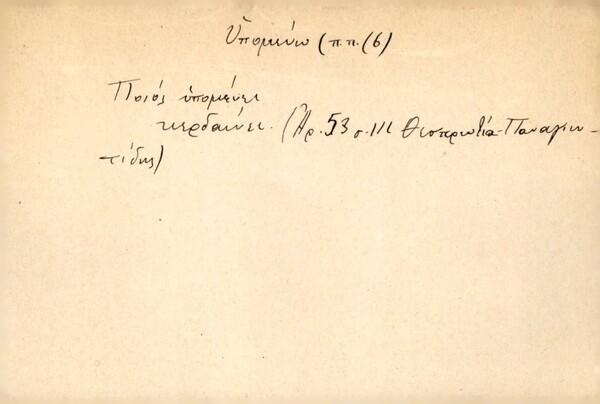 Ὑπομένω (π.π. (6)
Ποιός ὑπομένει
κερδαίνει. (Ἀρ. 53 σ. 111 Θεσπρωτία-Παναγιω-
τίδης)